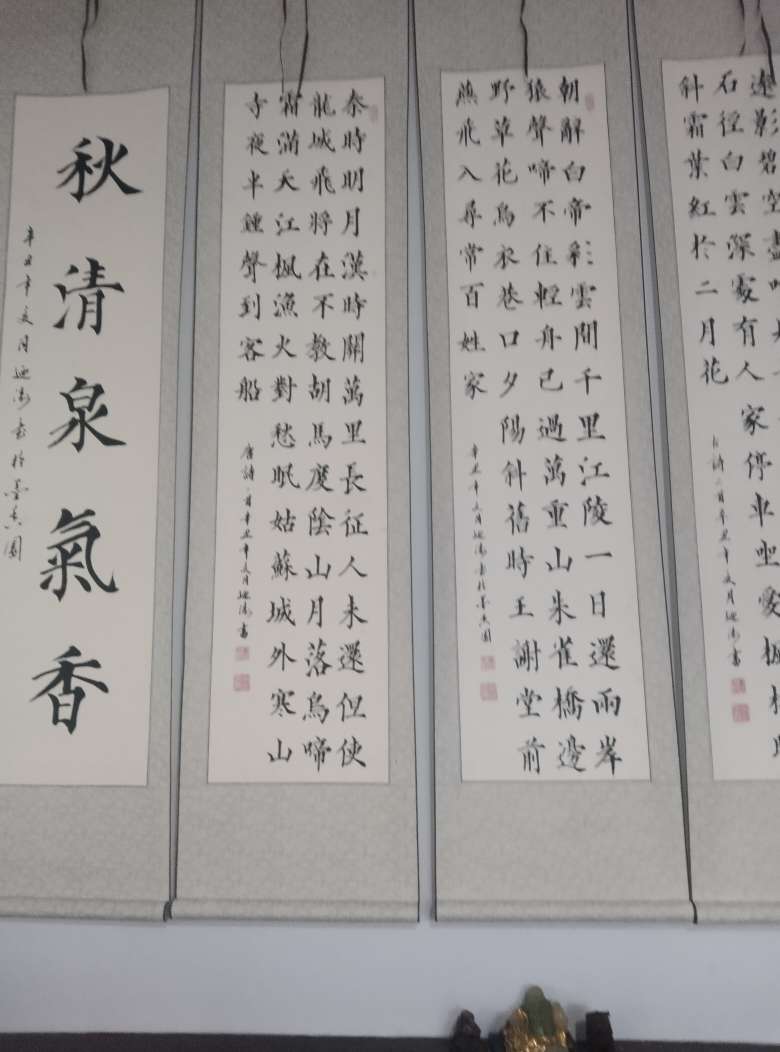 遠影碧空盡唯
石徑白雲深處有人家停車坐愛楓林
斜霜葉紅於二月花
詩二首辛丑年文月迎濤書
朝辭白帝彩雲間千里江陵一日還兩岸
猿聲啼不住輕舟已過萬重山朱雀橋邊
野草花烏衣巷口夕陽斜舊時王謝堂前
燕飛入尋常百姓家
辛丑年文月迎濤書於墨香園
秦時明月漢時關萬里長征人未還但使
龍城飛將在不教胡馬度陰山月落烏啼
霜滿天江楓漁火對愁眠姑蘇城外寒山
寺夜半鍾聲到客船
唐詩二首辛丑年文月迎濤書
秋清泉氣香
辛丑年文月迎濤書於墨香園